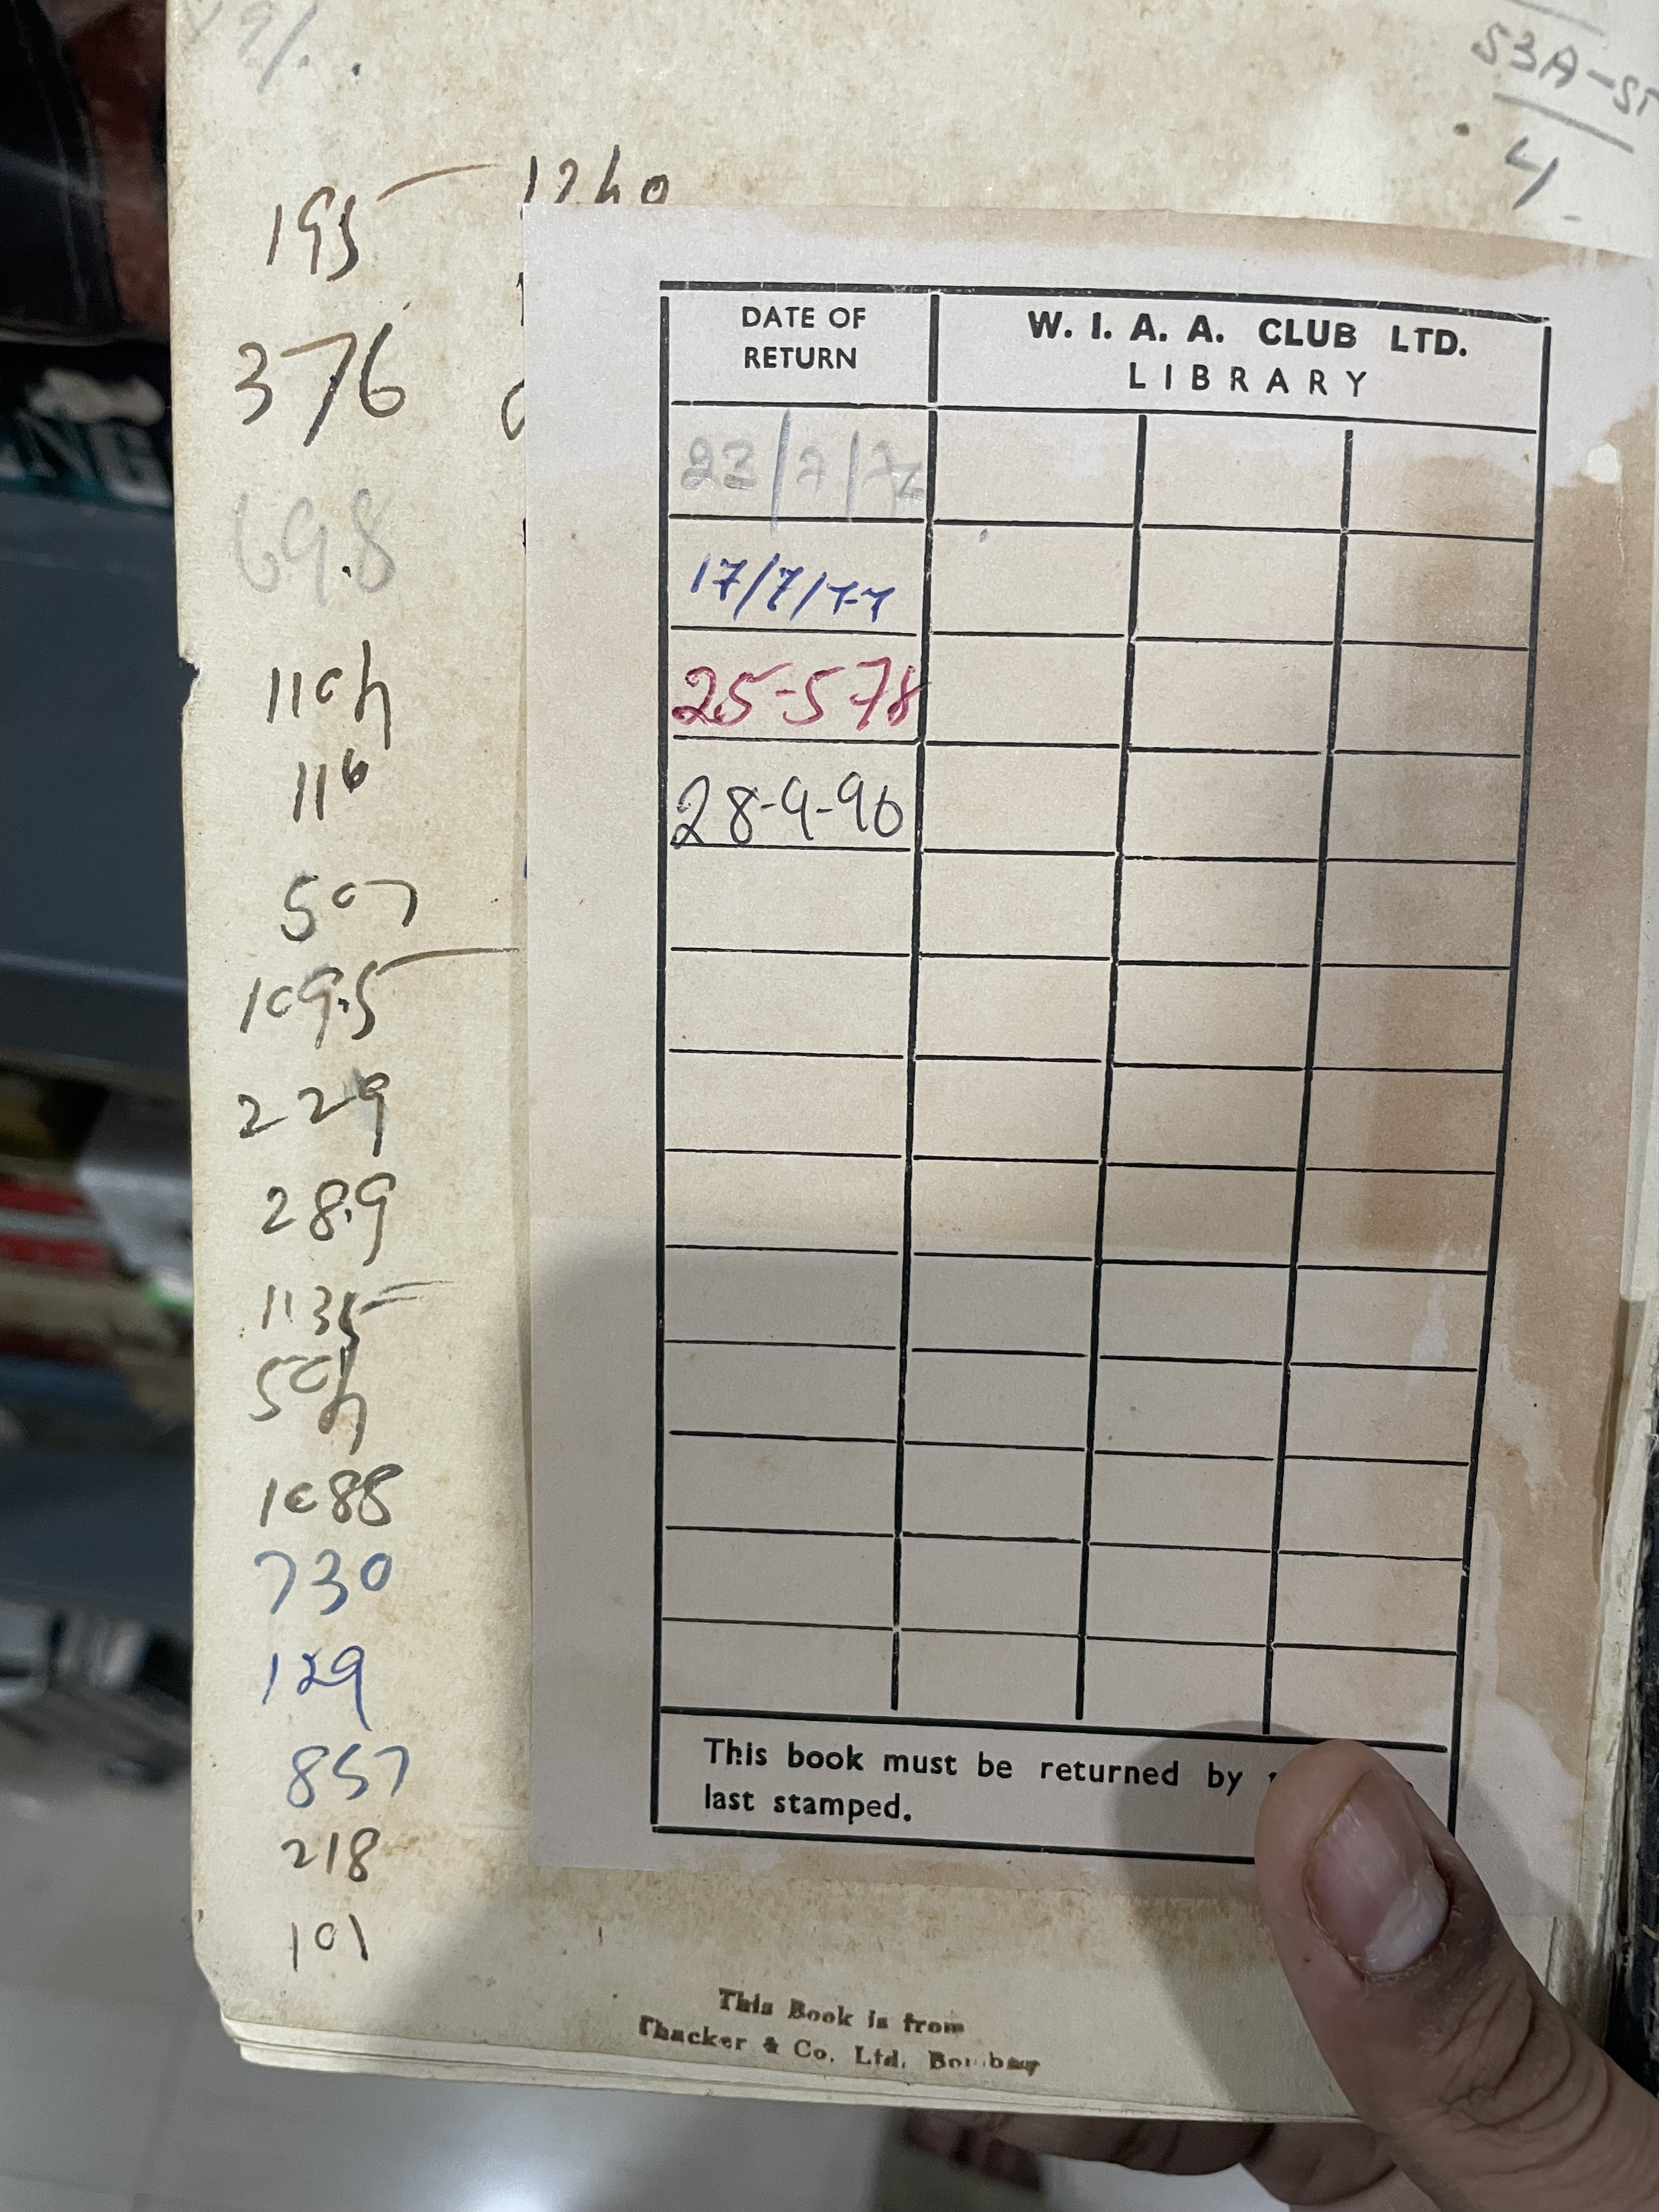 S3A-ST
4
195
1240
376
698
1104
116
507
1095
229
289
1135
504
1088
730
129
857
218
101
DATE OF
RETURN
W. I. A. A. CLUB LTD.
LIBRARY
17/7/77
25-5-78
28-9-90
This book must be returned by
last stamped.
This Book is from
Thacker & Co. Ltd. Bombay